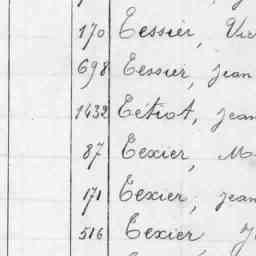 170 Tessier, Vic
698 Tessier, Jean
1432 Tétiot, Jean
87 Texier, M
171 Texier, Jean
516 Texier J